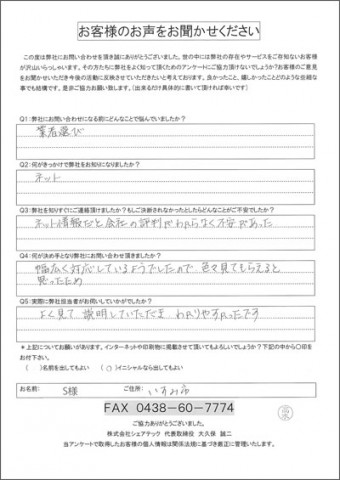 お客様のお声をお聞かせください
この度は弊社にお問い合わせを頂き誠にありがとうございました。世の中には弊社の存在やサービスをご存知ないお客様
が沢山いらっしゃいます。その方たちに弊社をよく知って頂くためのアンケートにご協力頂けないでしょうか?お客様のご意見
をお聞かせいただき今後の活動に反映させていただきたいと考えております。良かったこと、嬉しかったことなどの些細な
事でも結構です。是非ご協力お願い致します。(出来るだけ具体的に書いて頂ければ幸いです)
Q1:弊社にお問い合わせになる前にどんなことで悩んでいましたか?
業者選び
Q2:何がきっかけで弊社をお知りになりましたか?
ネット
Q3:弊社を知りすぐにご連絡頂けましたか?もしご決断されなかったとしたらどんなことがご不安でしたか?
ネット情報だと会社の評判がわからなく不安があった
Q4:何が決め手となり弊社にお問い合わせ頂きましたか?
幅広く対応しているようでしたので色々見てもらえると
思ったため
Q5:実際に弊社担当者がお伺いしていかがでしたか?
よく見て説明していただき わかりやすかったです
*上記についてお願いがあります。インターネットや印刷物に掲載させて頂いてもよろしいでしょうか?下記の中から〇印を
お付下さい。
( )名前を出してもよい ( 〇 )イニシャルなら出してもよい
お名前: S様 ご住所: いすみ市
FAX 0438-60-7774
ご協力ありがとうございました。
株式会社シェアテック 代表取締役 大久保 誠二
当アンケートで取得したお客様の個人情報は関係法規に基づき厳正に管理いたします。